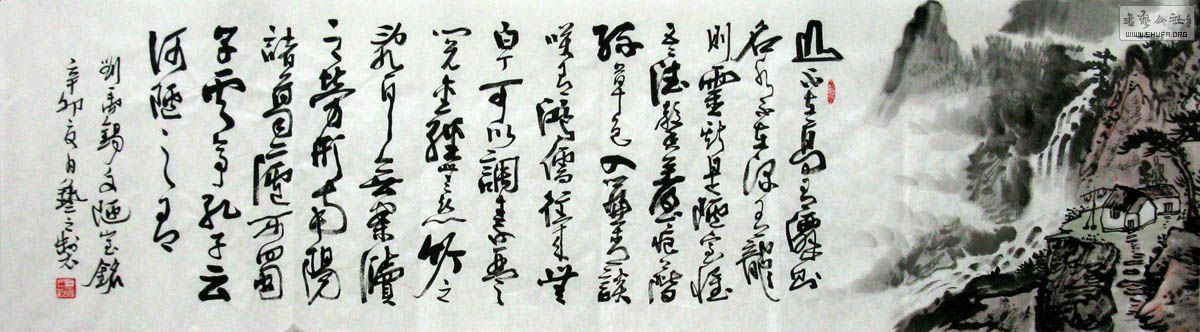 山不在高有僊則
名水不在深有龍
則靈斯是陋室惟
吾德馨苔痕上階
綠草色入簾青談
笑有鴻儒往來無
白丁可以調素琴
閱金經無絲竹之
亂耳無案牘
之勞形南陽
諸葛廬西蜀
子雲亭孔子云
何陋之有
劉禹錫文陋室銘
辛卯夏月藝之
書藝公社
WWW.SHUFA.ORG